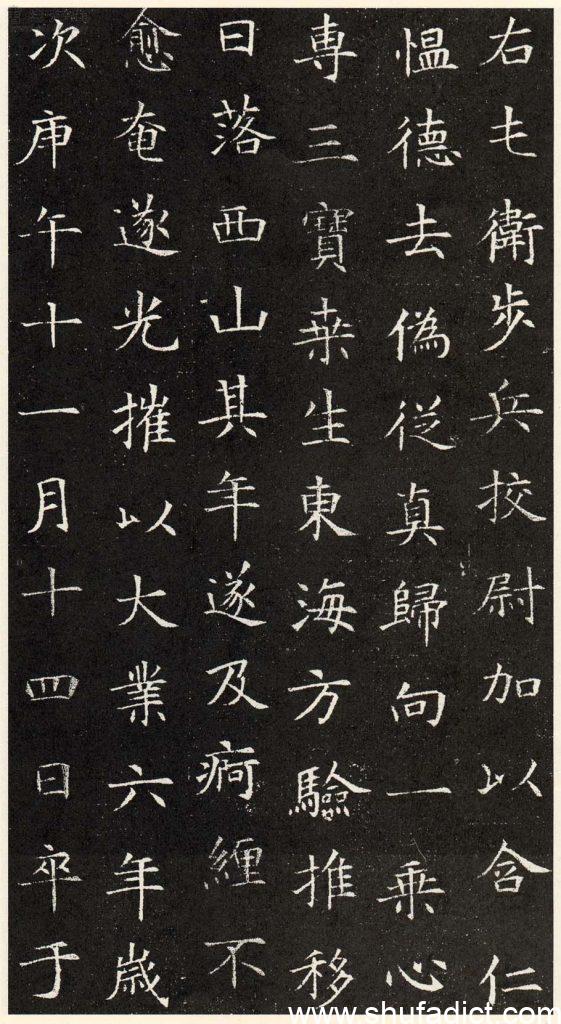 右屯衛步兵挍尉加以含仁
愠德去偽從真歸向一乗心
專三寶桒生東海方驗推移
日落西山其年遂及痾纏不
愈奄遂光摧以大業六年歲
次庚午十一月十四日卒于
www.shufadict.com